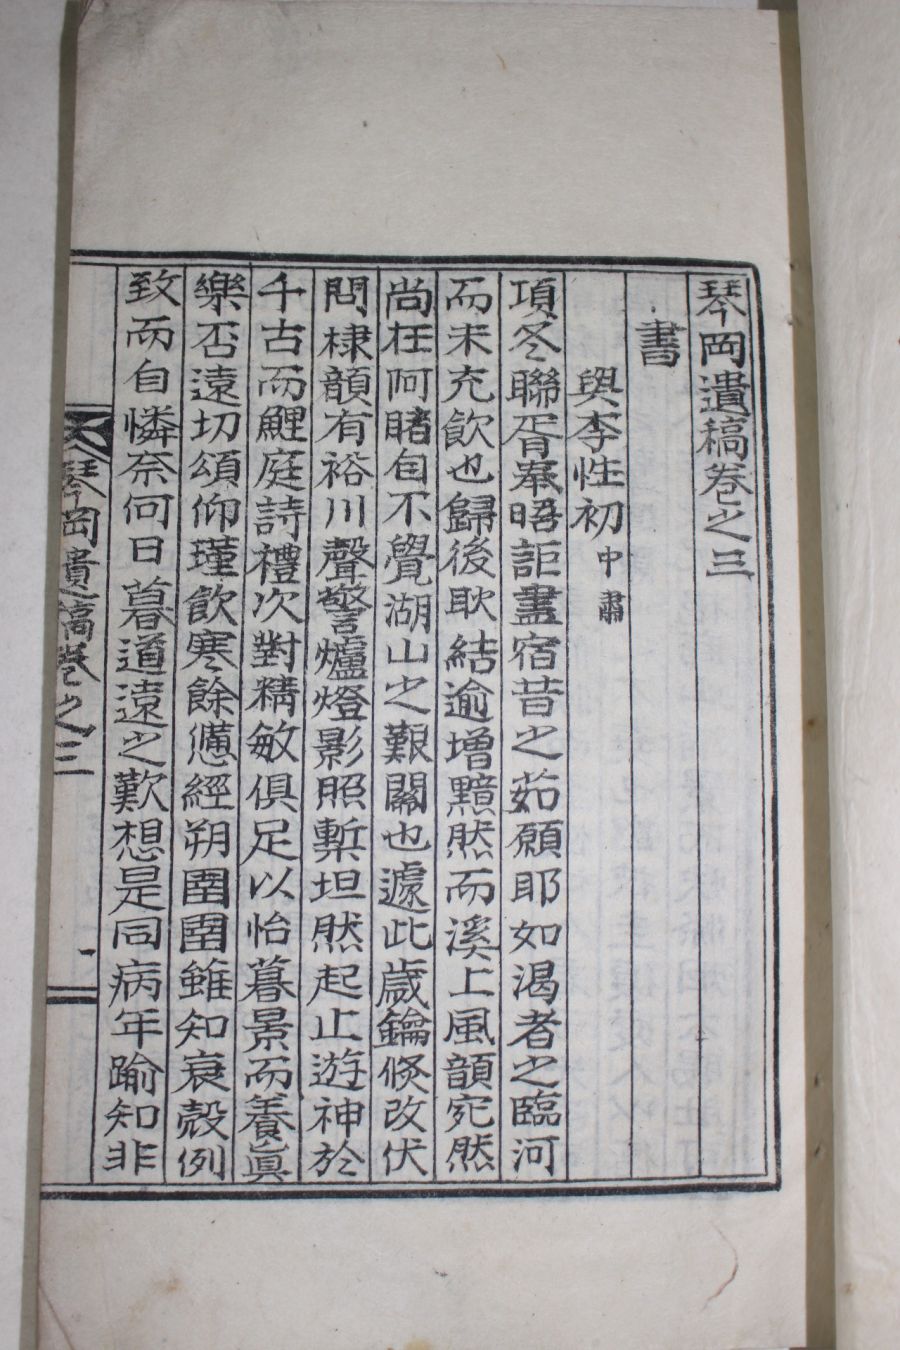 琴岡遺稿卷之三
書
與李性初 中肅
項冬聯胥奉晤詎盡宿昔之茹願耶如渴者之臨河
而未充飮也歸後耿結逾增黯然而溪上風韻宛然
尚在阿睹自不覺湖山之艱關也遽此歲鑰倏改伏
問棣韻有裕川聲警爐燈影照槧坦然起止遊神於
千古而鯉庭詩禮次對精敏俱足以怡暮景而養眞
樂否遠切頌仰瑾飮寒餘憊經朔圉圉雖知衰殼例
致而自憐奈何日暮道遠之歎想是同病年踰知非
琴岡遺稿卷之三
一